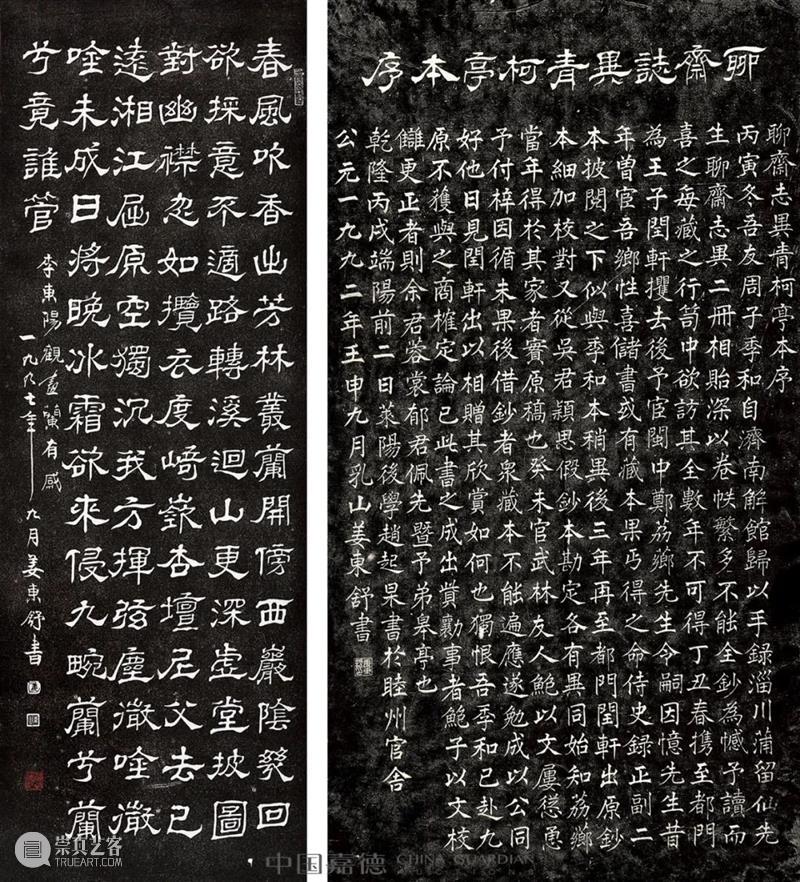 聊齋誌異青柯亭本序
聊齋志異青柯亭本序
丙寅冬吾友周子季和自濟南解館歸以手録淄川蒲留仙先
生聊齋志異二冊相貽深以卷帙繁多不能全鈔為憾予讀而
喜之每藏之行笥中欲訪其全數年不可得丁丑春携至都門
為王子閏軒攫去後予宦閩中鄭荔薌先生令嗣因憶先生昔
年曽宦吾鄉性喜儲書或有藏本果丐得之命侍史録正副二
本披閱之下似與季和本稍異後三年再至都門閏軒出原鈔
本細加校對又從吳君穎思假鈔本勘定各有異同始知荔薌
當年得於其家者實原稿也癸未官武林友人鮑以文屢慫恿
予付梓因循未果後借鈔者衆藏本不能遍應遂勉成以公同
好他日見閏軒出以相贈其欣賞如何也獨恨吾季和已赴九
原不獲與之商榷定論已此書之成出貲勷事者鮑子以文校
讎更正者則余君蓉裳郁君佩先暨予弟皋亭也
乾隆丙戌端陽前二日萊陽後學趙起杲書於睦州官舍
公元一九九二年壬申九月乳山姜東舒書
春風吹香出芳林叢蘭開傍西巖陰幾回
欲採意不適路轉溪迴山更深虛堂披圖
對幽襟忽如攬衣度崎嶔杏壇尼父去已
遠湘江屈原空獨沉我方揮弦塵徽唫徽
唫未成日將晚冰霜欲來侵九畹蘭兮蘭
兮竟誰管
李東陽觀畫蘭有感
一九九七年九月姜東舒書
崇真艺客
TRUEART.COM
中国嘉德 CHINA GUARDIAN